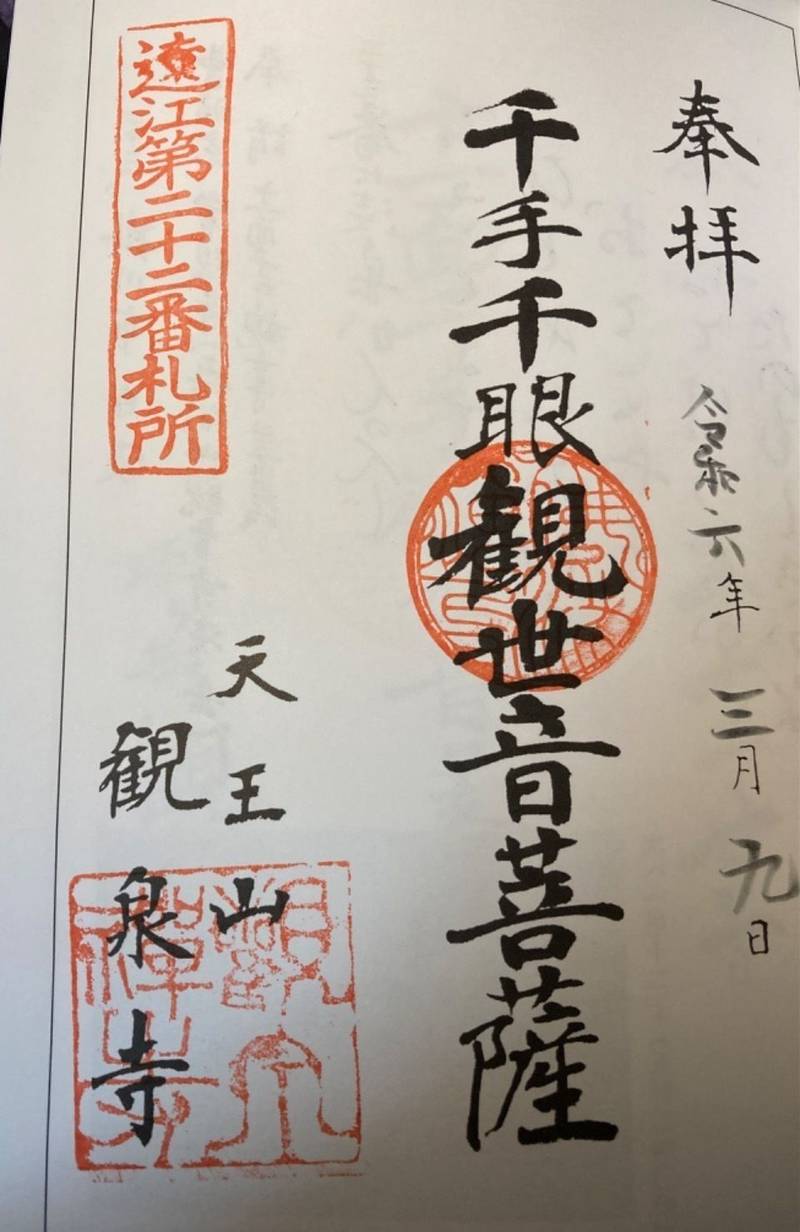 奉拝 令和六年 三月 九日
千手千眼観世音菩薩
天王山
観泉寺
遠江第二十二番札所
観泉禅寺